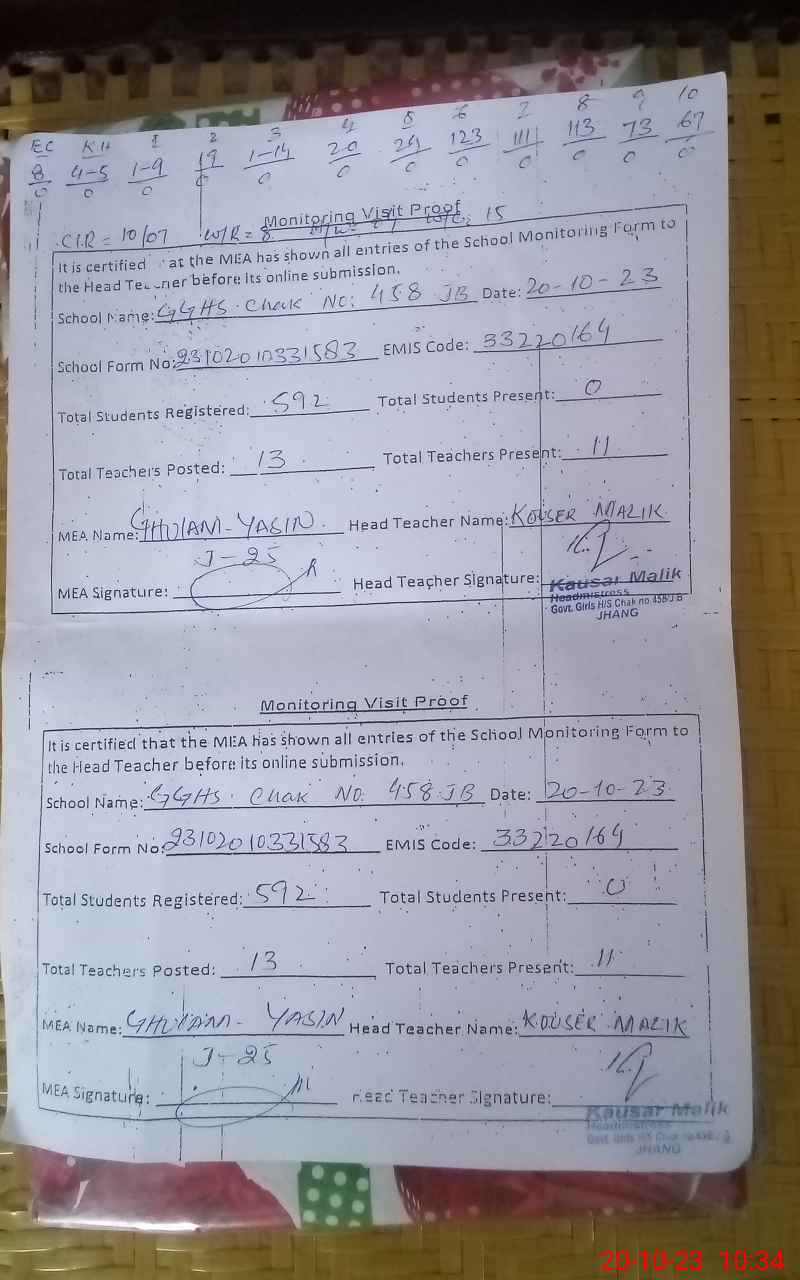 EC KH 1 2 3 4 5 6 7 8 9 10
8 4-5 1-9 19 1-14 20 123 1111 113 73 67
0 0 0 0 0 0 0 0 0 0 0 0
Monitoring Visit Proof
C.I.R = 10/07 W/R = 8 15
It is certified at the MEA has shown all entries of the School Monitoring Form to
the Head before its online submission.
School Name: GGHS. Chak NO: 458 JB Date: 20-10-23
School Form No: 23102010331583 EMIS Code: 33220164
Total Students Registered: 592 Total Students Present: 0
Total Teachers Posted: 13 Total Teachers Present: 11
MEA Name: GHULAM-YASIN. Head Teacher Name: KOUSER MALIK
J-25
MEA Signature: Head Teacher Signature:
Kausar Malik
Headmistress
Govt. Girls H/S Chak no.458/J B
JHANG
Monitoring Visit Proof
It is certified that the MEA has shown all entries of the School Monitoring Form to
the Head Teacher before its online submission.
School Name: GGHS. Chak NO. 458.JB Date: 20-10-23
School Form No: 23102010331583 EMIS Code: 33220164
Total Students Registered: 592 Total Students Present: 0
Total Teachers Posted: 13 Total Teachers Present: 11
MEA Name: GHULAM- YASIN Head Teacher Name: KOUSER MALIK
J-25
MEA Signature: Head Teacher Signature:
Kausar Malik
Headmistress
Govt. Girls H/S Chak no.458/J B
JHANG
20-10-23 10:34